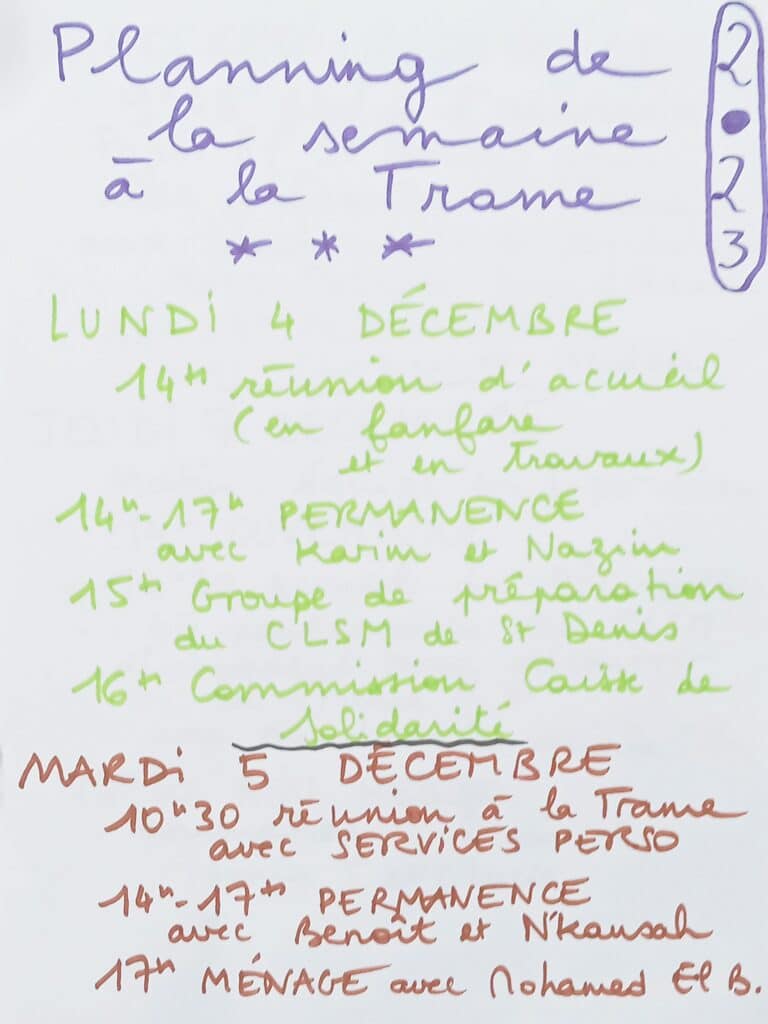 Planning de
la semaine
à la Trame
* * *
2
•
2
3
LUNDI 4 DÉCEMBRE
14h réunion d'accueil
(en fanfare
et en travaux)
14h-17h PERMANENCE
avec Karim et Nazim
15h Groupe de préparation
du CLSM de St Denis
16h Commission Caisse de
Solidarité
MARDI 5 DÉCEMBRE
10h30 réunion à la Trame
avec SERVICES PERSO
14h-17h PERMANENCE
avec Benoît et N'Kansah
17h MÉNAGE avec Mohamed El B.